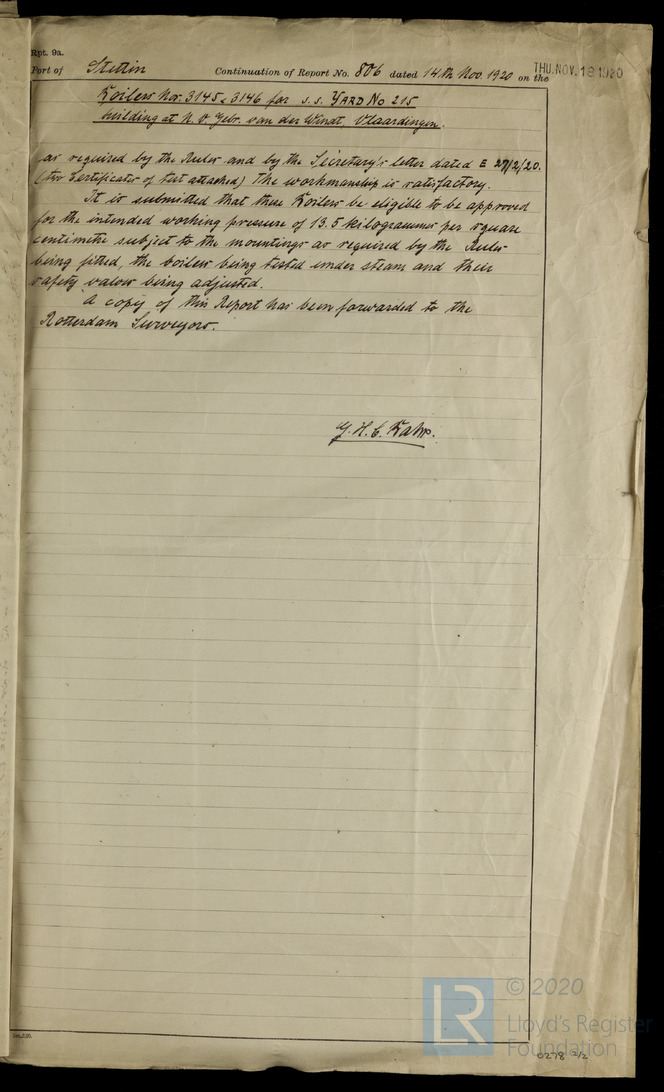 Rpt. 9a.
Port of Stettin Continuation of Report No. 806 dated 14th Nov. 1920 on the
THU. NOV. 18 1920
Boilers Nos. 3145 & 3146 for s.s. YARD No 215
building at N. V. Gebr. van der Windt, Vlaardingen.
as required by the Rules and by the Secretary's letter dated E 27/2/20.
(two Certificates of test attached) The workmanship is satisfactory.
It is submitted that these Boilers be eligible to be approved
for the intended working pressure of 13.5 kilogrammes per square
centimetre subject to the mountings as required by the Rules
being fitted, the boilers being tested under steam and their
safety valves being adjusted.
A copy of this Report has been forwarded to the
Rotterdam Surveyors.
© 2020
LR
Lloyd's Register
Foundation
0278 2/2